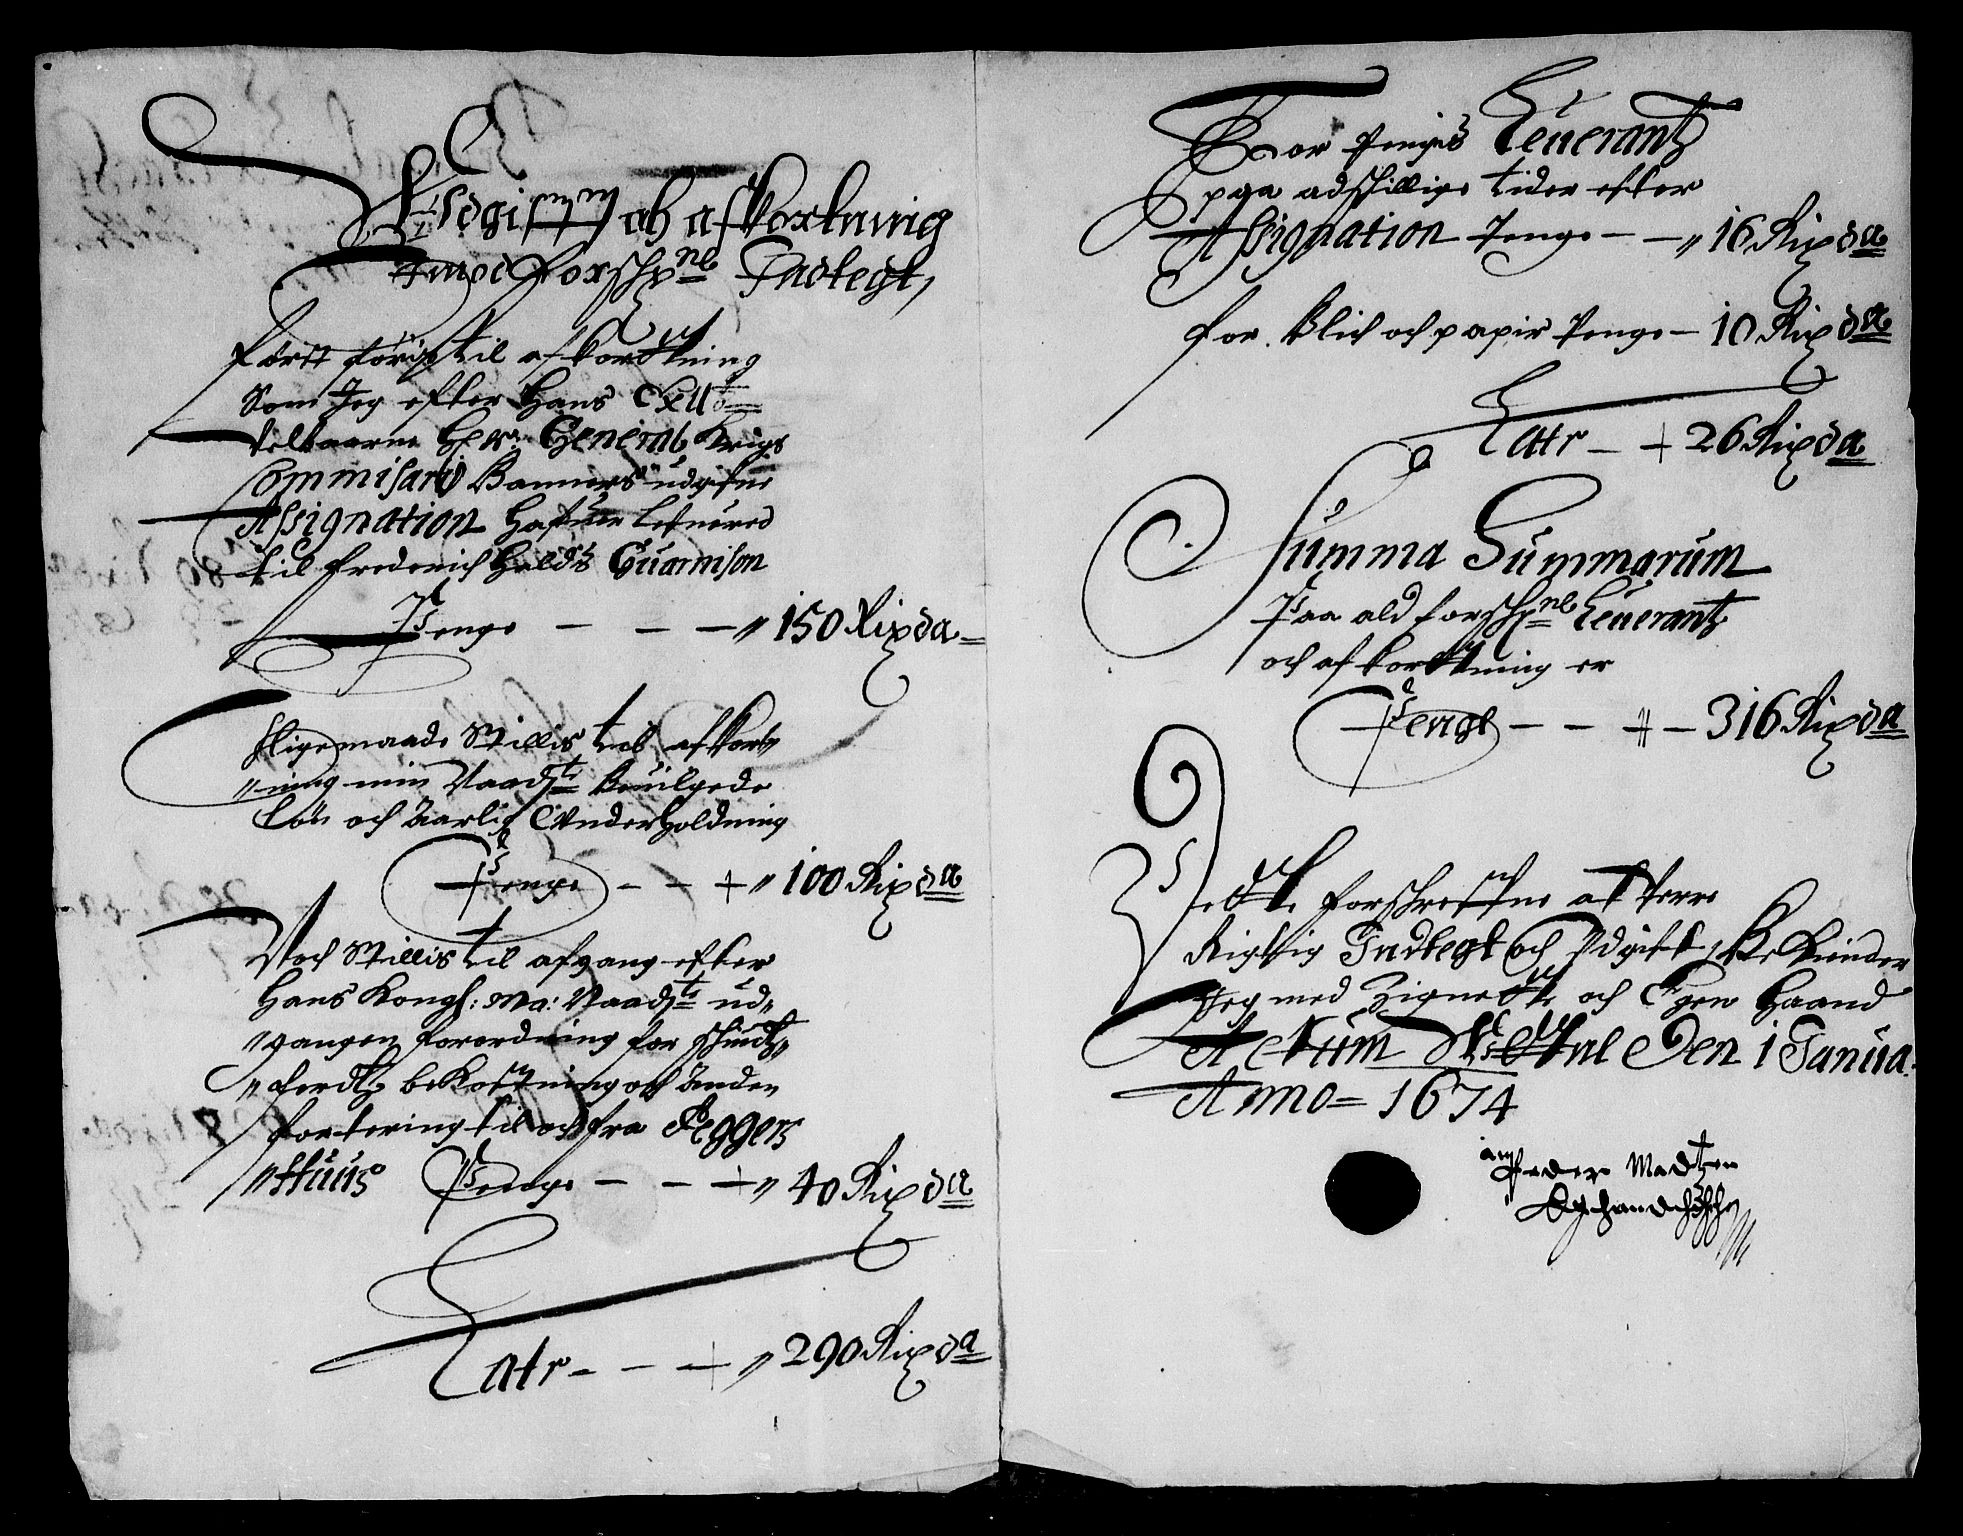 Udgifft och afkortning
Imod forschr:ne Indtegt,
Først føris til afkortning
Som Jeg efter Hans Excell:
velbaarne Her: General Krigs
Commisari Banners udgifne
Assignation Hafuer lefuered
til Frederich Halds Guarnison
Penge — — — 150 Rixda
Ligemaade Stillis til afkort
ning min Naadste Beuilgede
Løn och Aarlig Underholdning
Penge — — 100 Rixda
Noch Stillis til afgang efter
Hans Kongl: Ma: Naadste ud
gangen forordning for schiudtz
ferdtz beKostning och anden
fortering til och fra Aggers
Huus Penge — — 40 Rixda
Latr — — 290 Rixda
For Penges Leuerantz
paa adschillige tider efter
Assignation Penge — — 16 Rixda
for Blich och papir Penge — 10 Rixda
Latr — 26 Rixda
Summa Summarum
Paa ald forschr:ne Leuerantz
och afkortning er
Penge — — — 316 Rixda
Dette forschreffne at verre
Rigttig Indtegt och Udgifft, Bekiender
Jeg med Zignette och Egen Haand
Actum den 1 Janua:
Anno = 1674
Peder Madtzen
Eghandchrifft